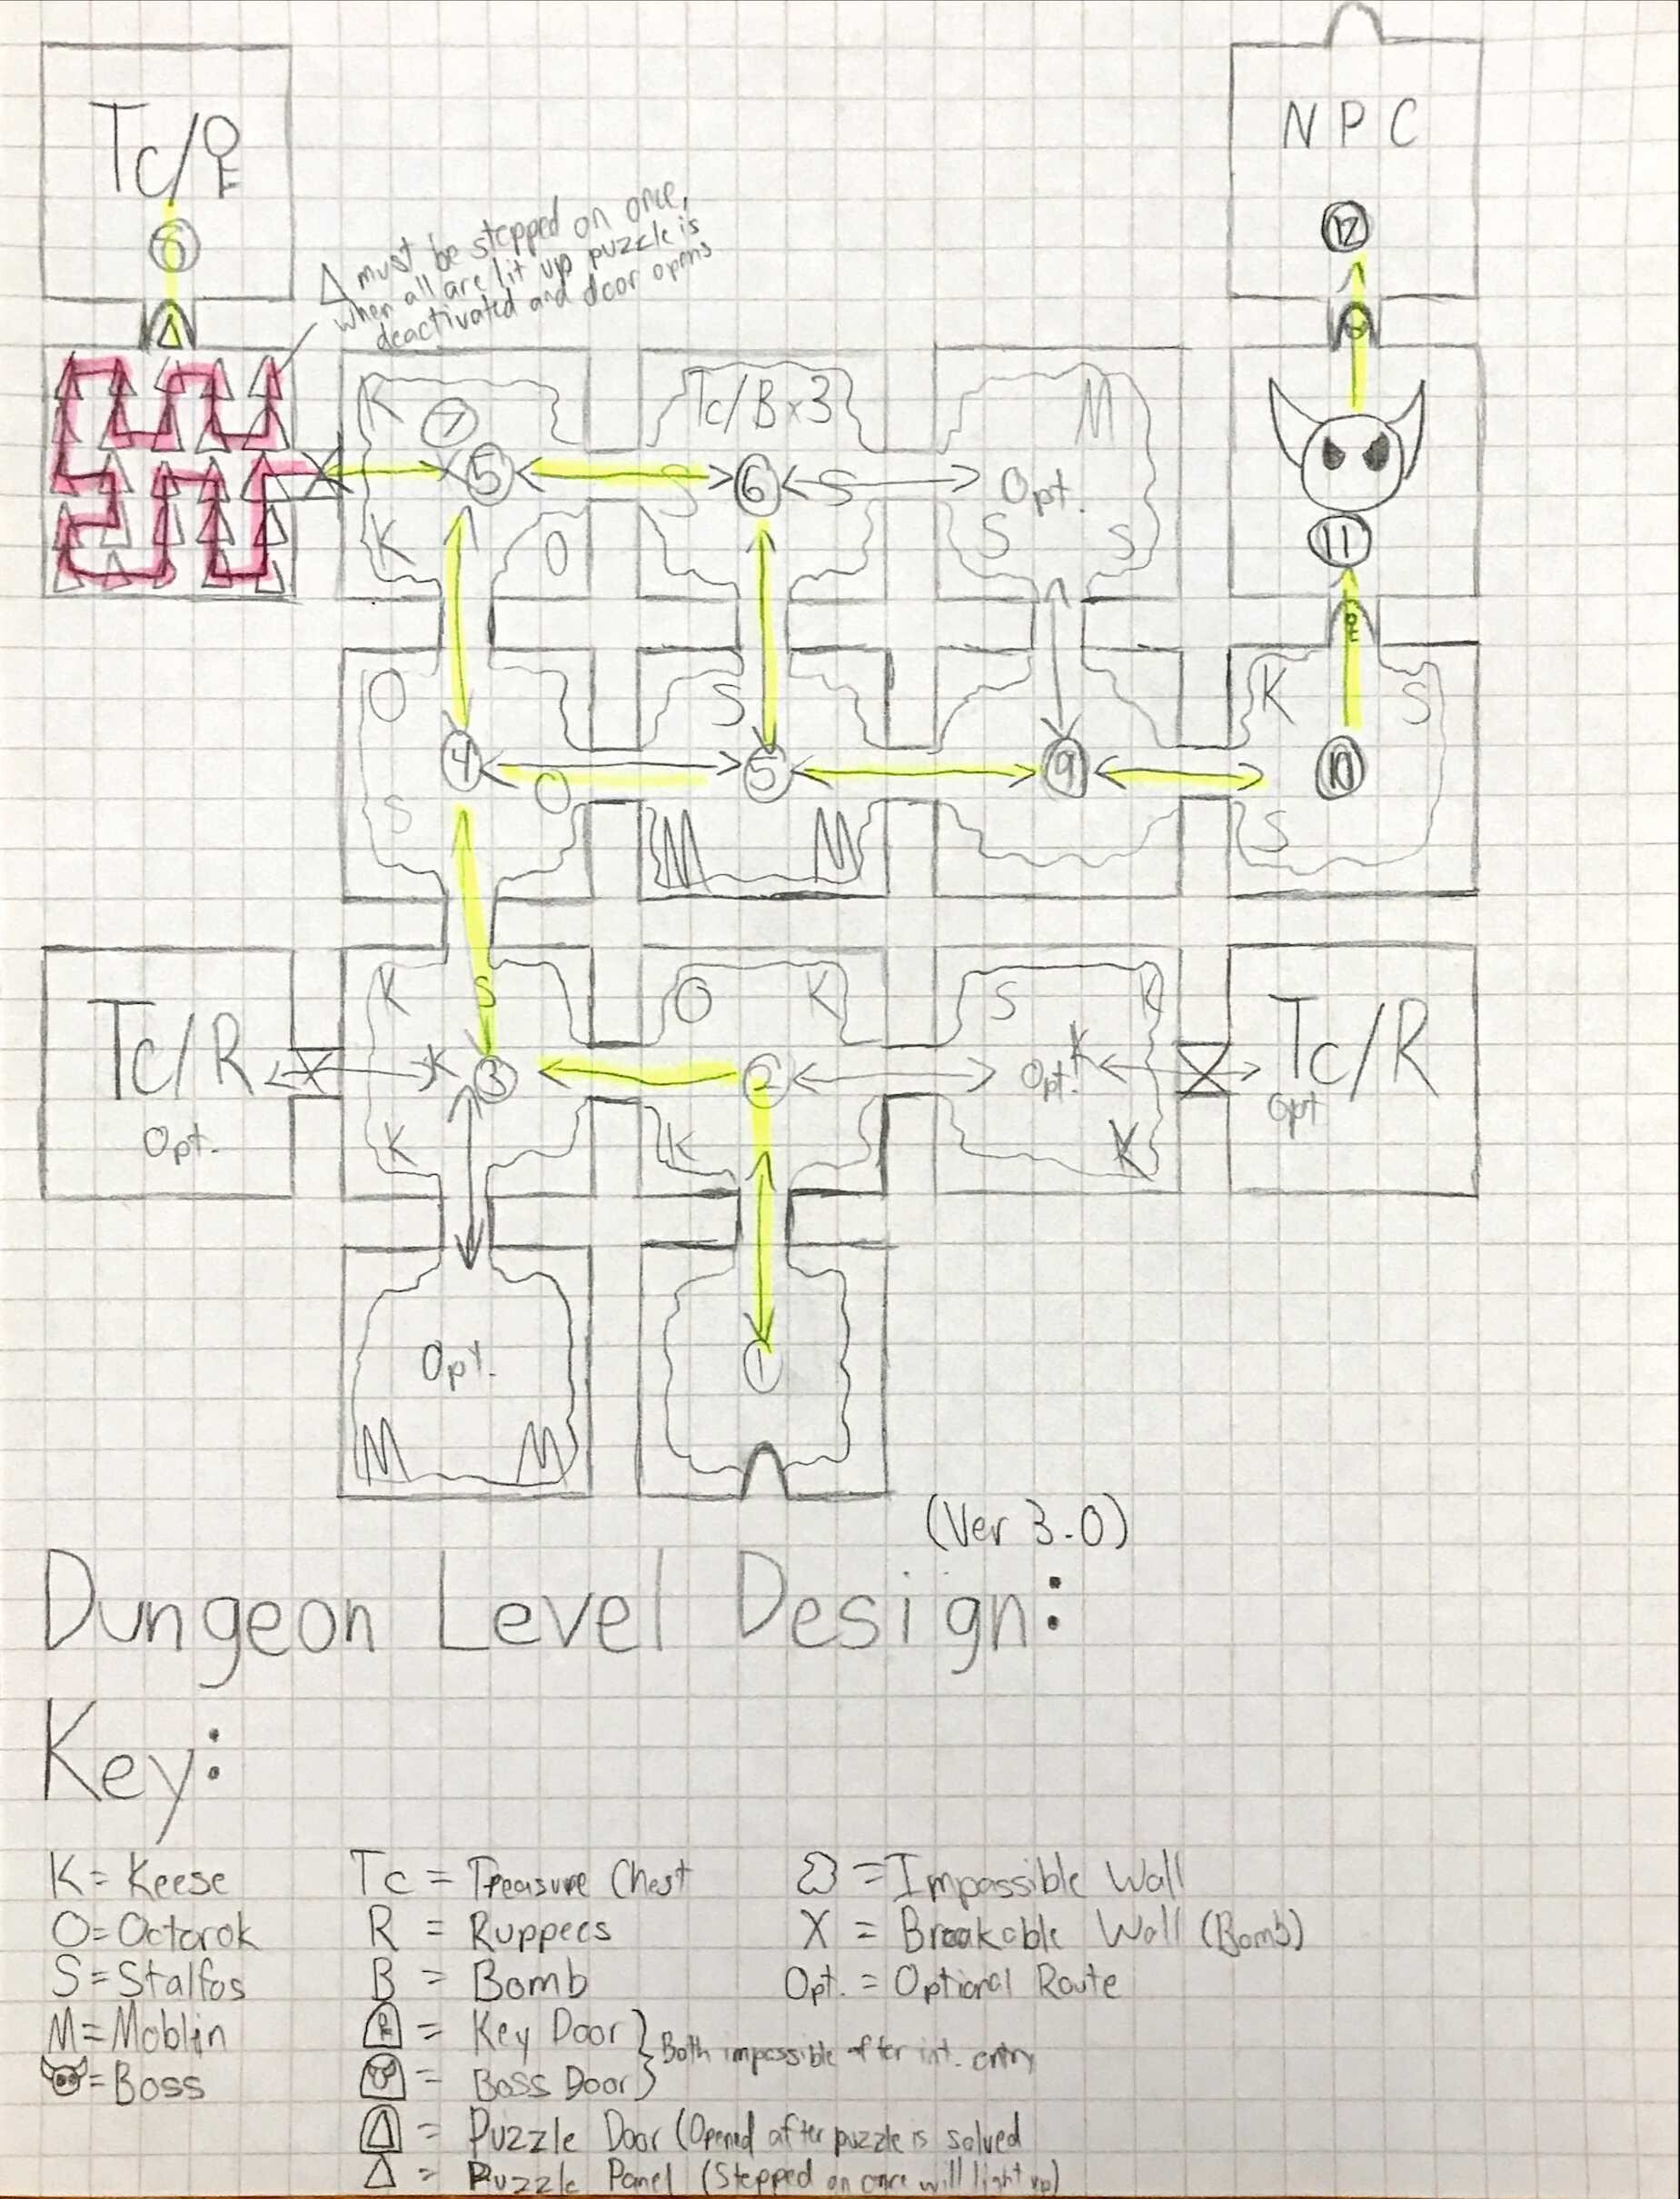 Tc/
8
Δ must be stepped on once,
when all are lit up puzzle is
deactivated and door opens
NPC
12
K
7
5
K
O
Tc/B x3
S
6
S
M
Opt.
S
S
11
O
4
O
S
S
5
M
M
9
K
S
10
S
Tc/R
Opt.
K
S
K
3
K
O
K
2
K
S
K
Opt.
K
K
Tc/R
Opt
Opt.
M
M
1
(Ver 3.0)
Dungeon Level Design:
Key:
K = Keese
O = Octorok
S = Stalfos
M = Moblin
= Boss
Tc = Treasure Chest
R = Ruppees
B = Bomb
= Key Door
= Boss Door
Both impassible after int. entry
= Puzzle Door (Opened after puzzle is solved
Δ = Puzzle Panel (Stepped on once will light up)
= Impassible Wall
X = Breakable Wall (Bomb)
Opt. = Optional Route